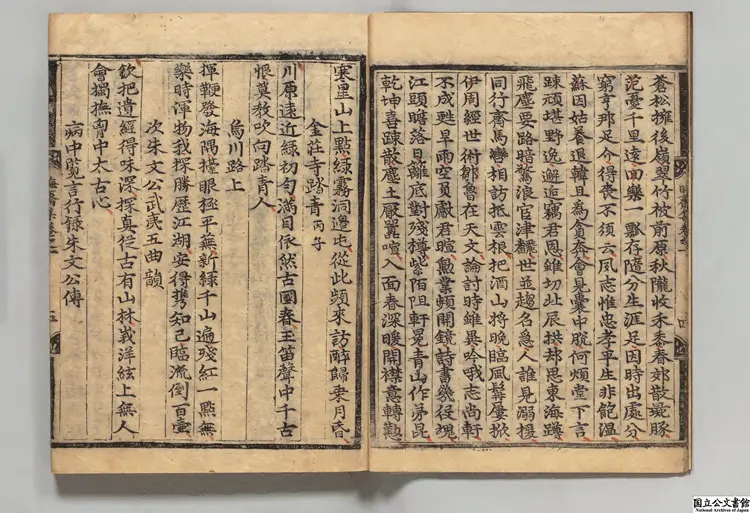 蒼松擁後嶺翠竹被前原秋隴收禾黍春郊散彘豚
范憂千里遠回樂一瓢存隨分生涯足因時出處分
窮亨那足介得喪不須云夙志惟忠孝平生非飽溫
蘇因姑養退韓且為貪奔會見囊中脫何煩堂下言
踈頑堪野逸邂逅竊君恩雖切北辰拱却思東海蹲
飛塵要路暗驚浪宦津飜世並趨名急人誰見溺援
同行齊馬鬣相訪抵雲根把酒山將晚臨風鬂屢掀
伊周經世術鄒魯在天文論討時雖異吟哦志尚軒
不成甦旱雨空負獻君暄勳業頻開鏡詩書幾役魂
江頭瞻落日籬底對殘樽紫陌阻軒冕青山作弟昆
乾坤喜踈散塵土厭囂喧入面春深暖開襟意轉懃
寒里山上點綠霧洞邊屯從此頻來訪醉歸乘月昏
金莊寺踏青 丙子
川原遠近綠初勻滿目依然古國春玉笛聲中千古
恨莫教吹向踏青人
烏川路上
揮鞭發海隅擡眼極平蕪新綠千山遍殘紅一點無
樂時渾物我探勝歷江湖安得携知己臨流倒百壷
次朱文公武夷五曲韻
欽把遺經得味深探真從古有山林峩洋絃上無人
會獨撫胷中太古心
病中覧言行錄朱文公傳